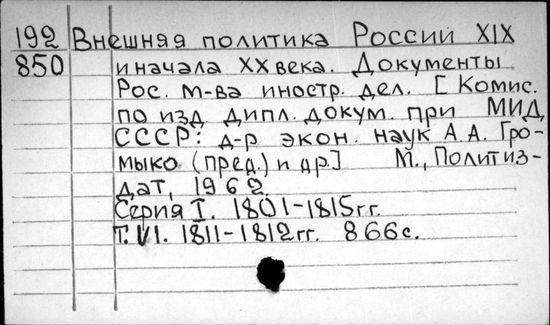 192 Внешняя политика России XIX
850 и начала XX века. Документы
Рос. м-ва иностр. дел. [Комис.
по изд. дипл. докум. при МИД
СССР: д-р экон. наук А.А. Гро-
мыко (пред.) и др.] М., Политиз-
дат, 1962.
Серия I. 1801-1815 гг.
Т. VI. 1811-1812 гг. 866 с.